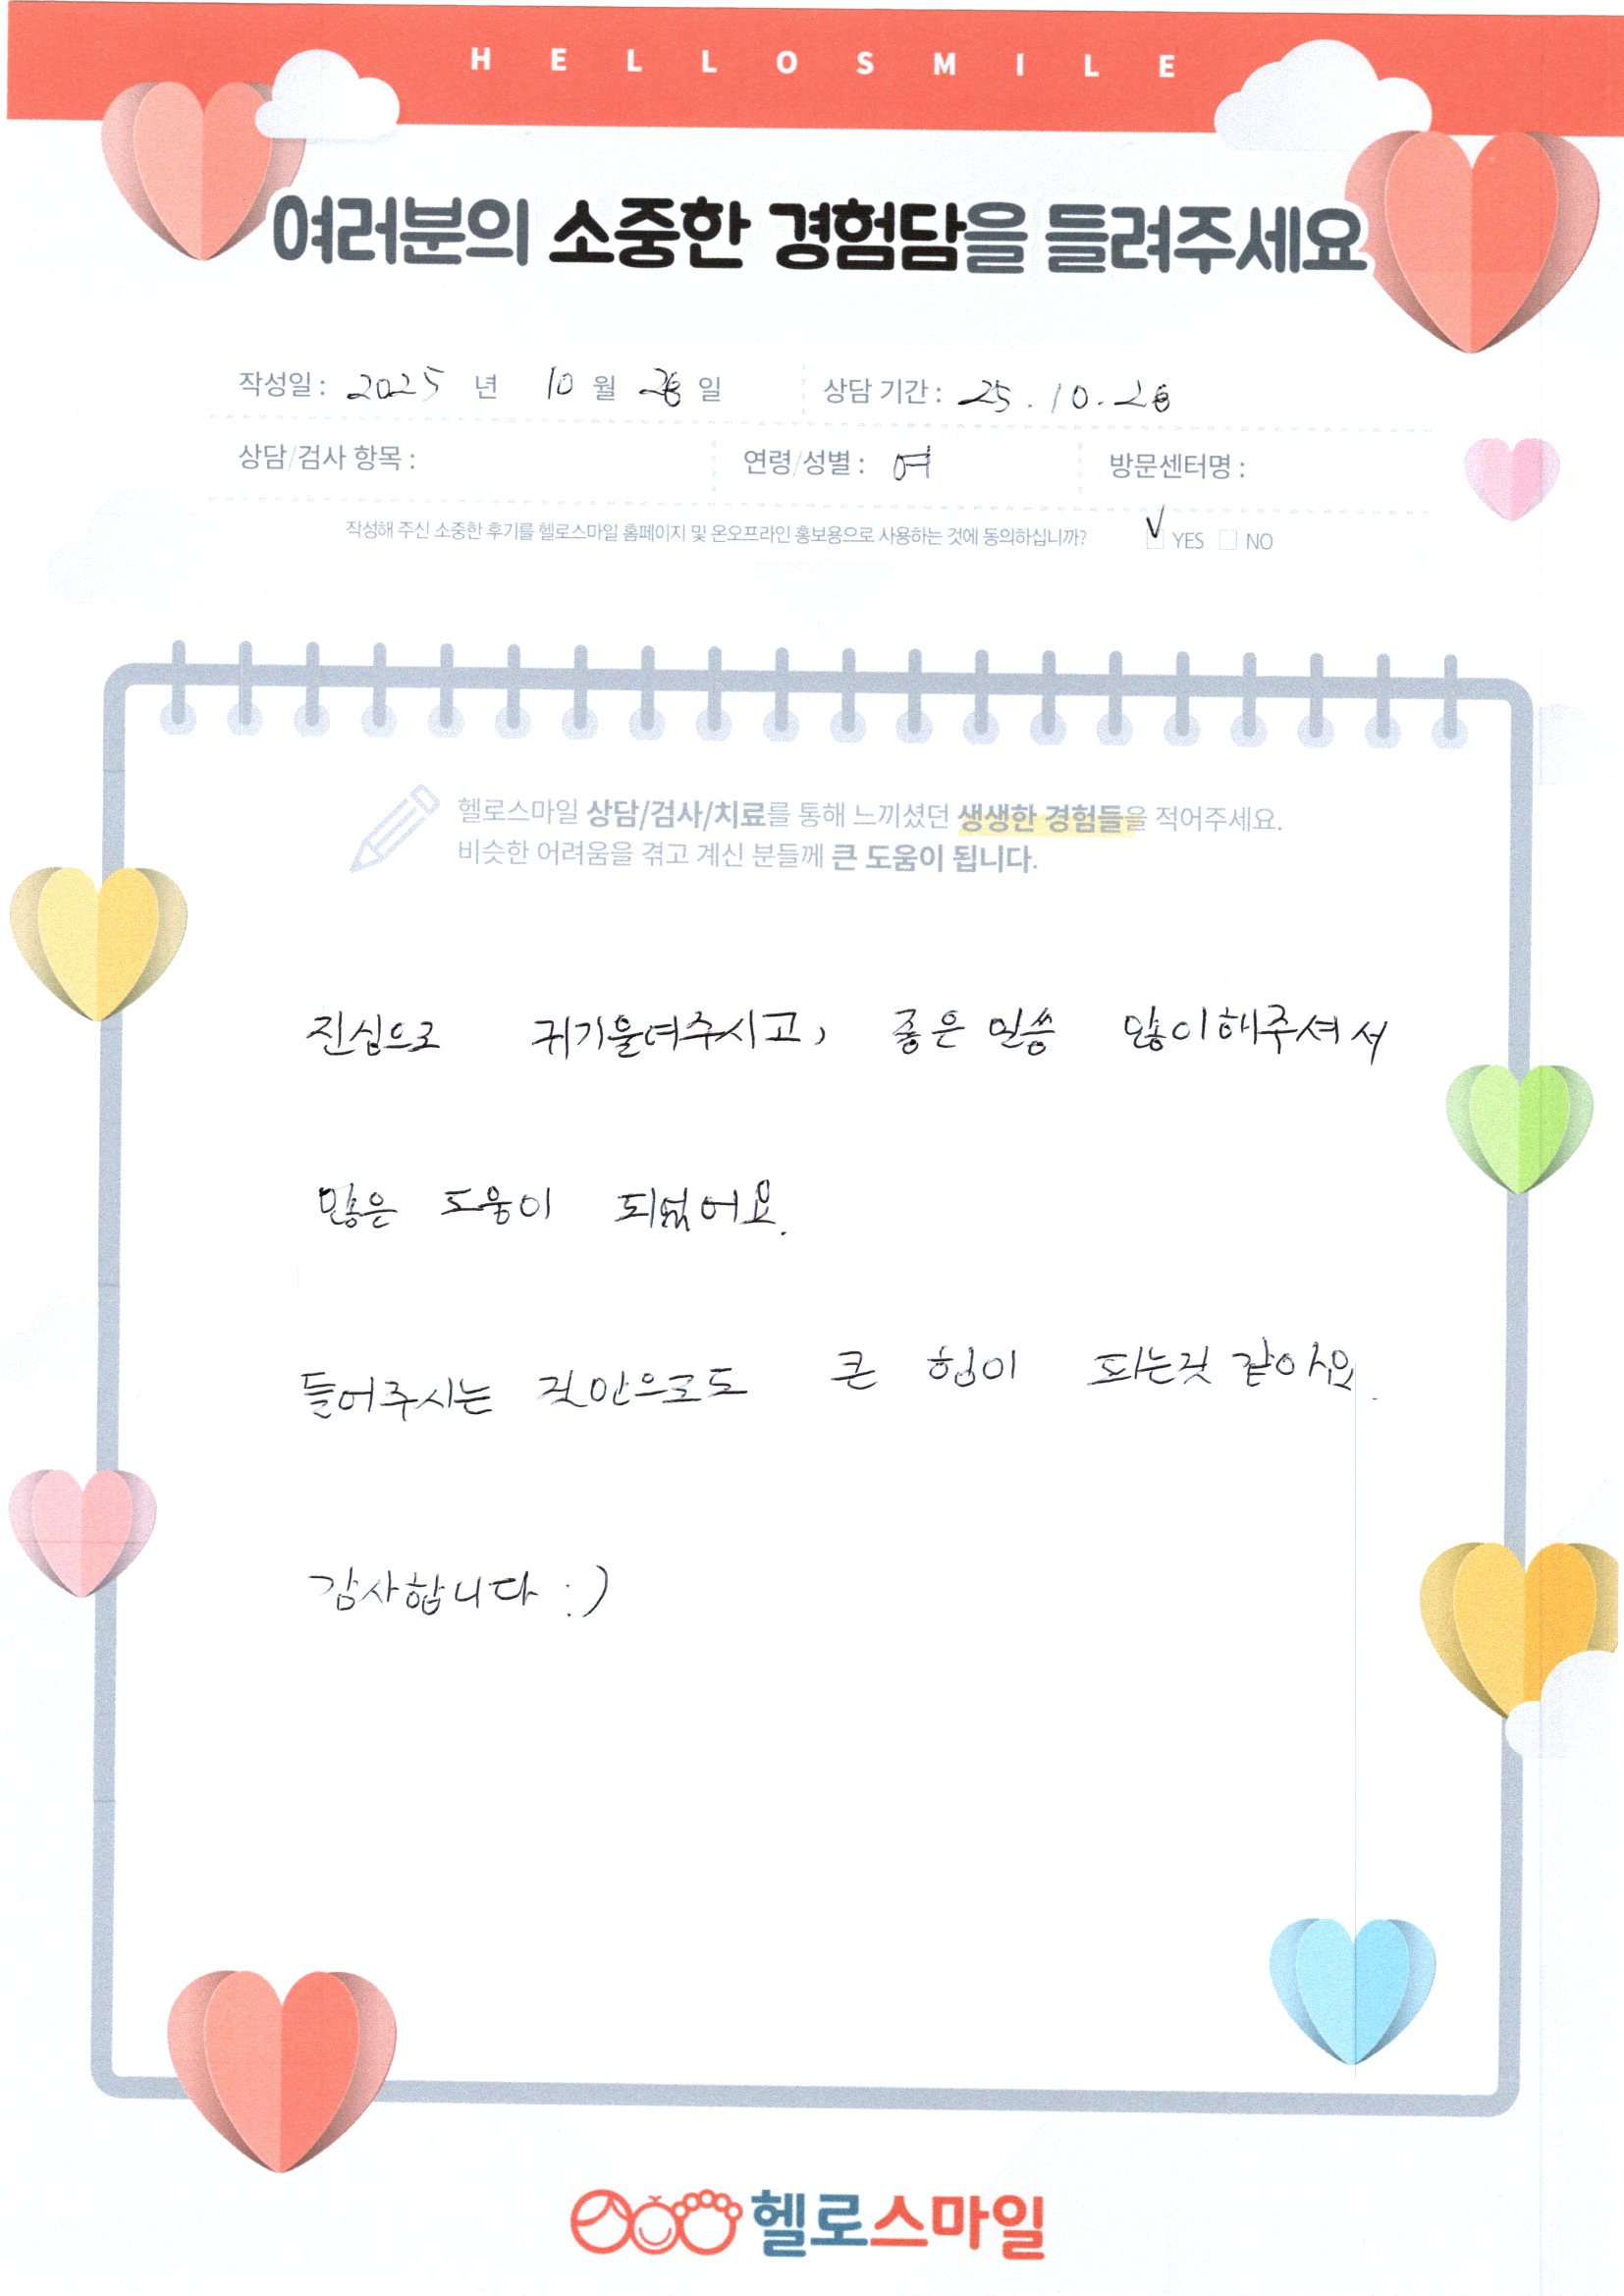 HELLOSMILE
여러분의 소중한 경험담을 들려주세요
작성일 : 2025 년 10 월 일 상담 기간 : 25.10.
상담/검사 항목 : 연령/성별 : 여 방문센터명 :
작성해 주신 소중한 후기를 헬로스마일 홈페이지 및 온오프라인 홍보용으로 사용하는 것에 동의하십니까? YES NO
헬로스마일 상담/검사/치료를 통해 느끼셨던 생생한 경험들을 적어주세요.
비슷한 어려움을 겪고 계신 분들께 큰 도움이 됩니다.
진심으로 귀기울여주시고, 좋은 말씀 많이해주셔서
많은 도움이 되었어요.
들어주시는 것만으로도 큰 힘이 되는것 같아요.
감사합니다 :)
헬로스마일